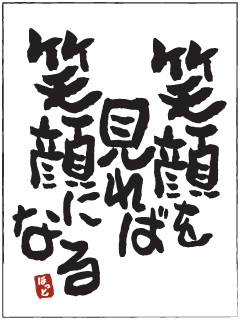 笑顔を
見れば
笑顔に
なる
ほっと